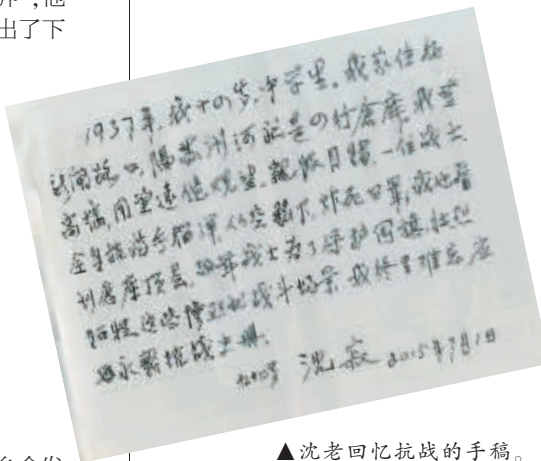 ，他
出了下
1937年，我十四岁，中学生。我家住在
新闸路口，隔苏州河就是四行仓库。我登
高楼，用望远镜观望。亲眼目睹一位战士
全身捆满手榴弹，从空跳下，炸死日军，我也看
到仓库顶层，
战士为了保护国旗壮烈
牺牲，这些
战斗场景，我终身难忘
永载抗战史册。
沈寂 2015年7月1日
▲沈老回忆抗战的手稿。